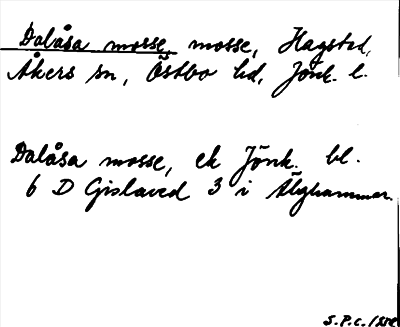 Dalåsa mosse, mosse, Hagstad,
Åkers sn, Östbo hd, Jönk. l.
Dalåsa mosse, ek Jönk. bl.
6 D Gislaved 3 i Älghammar.
S.P.C.